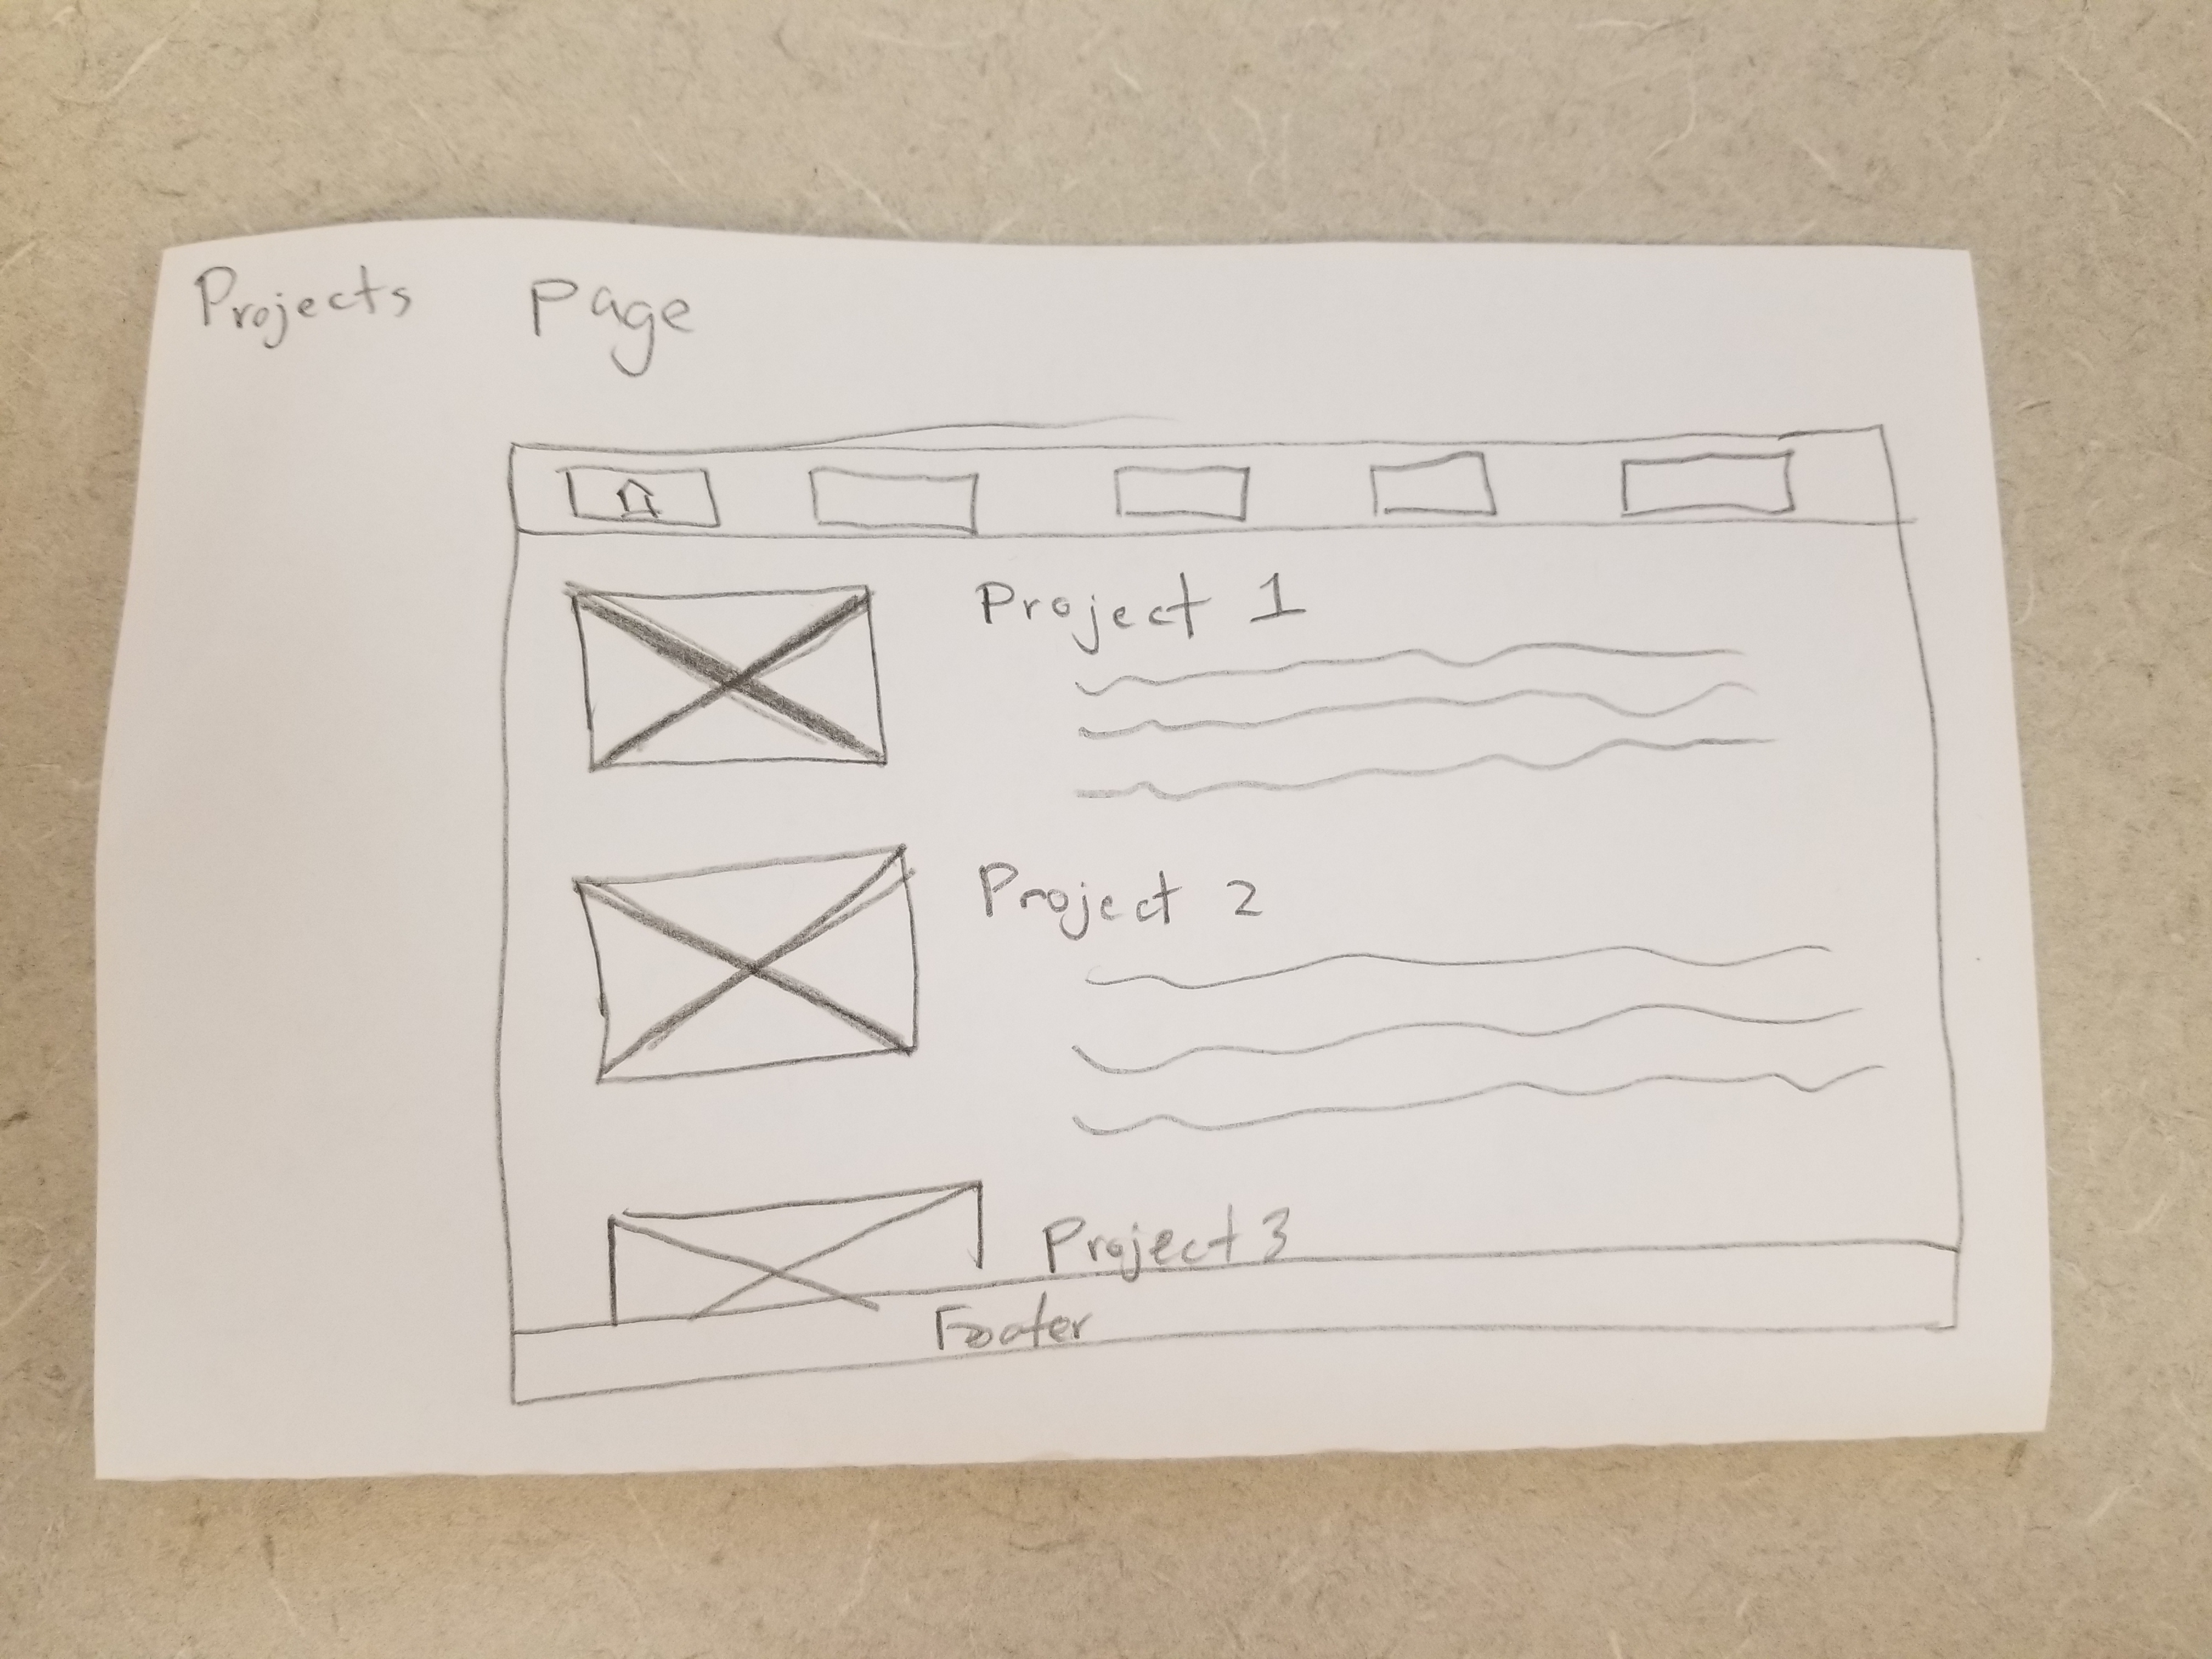 Projects Page
Project 1
Project 2
Project 3
Footer